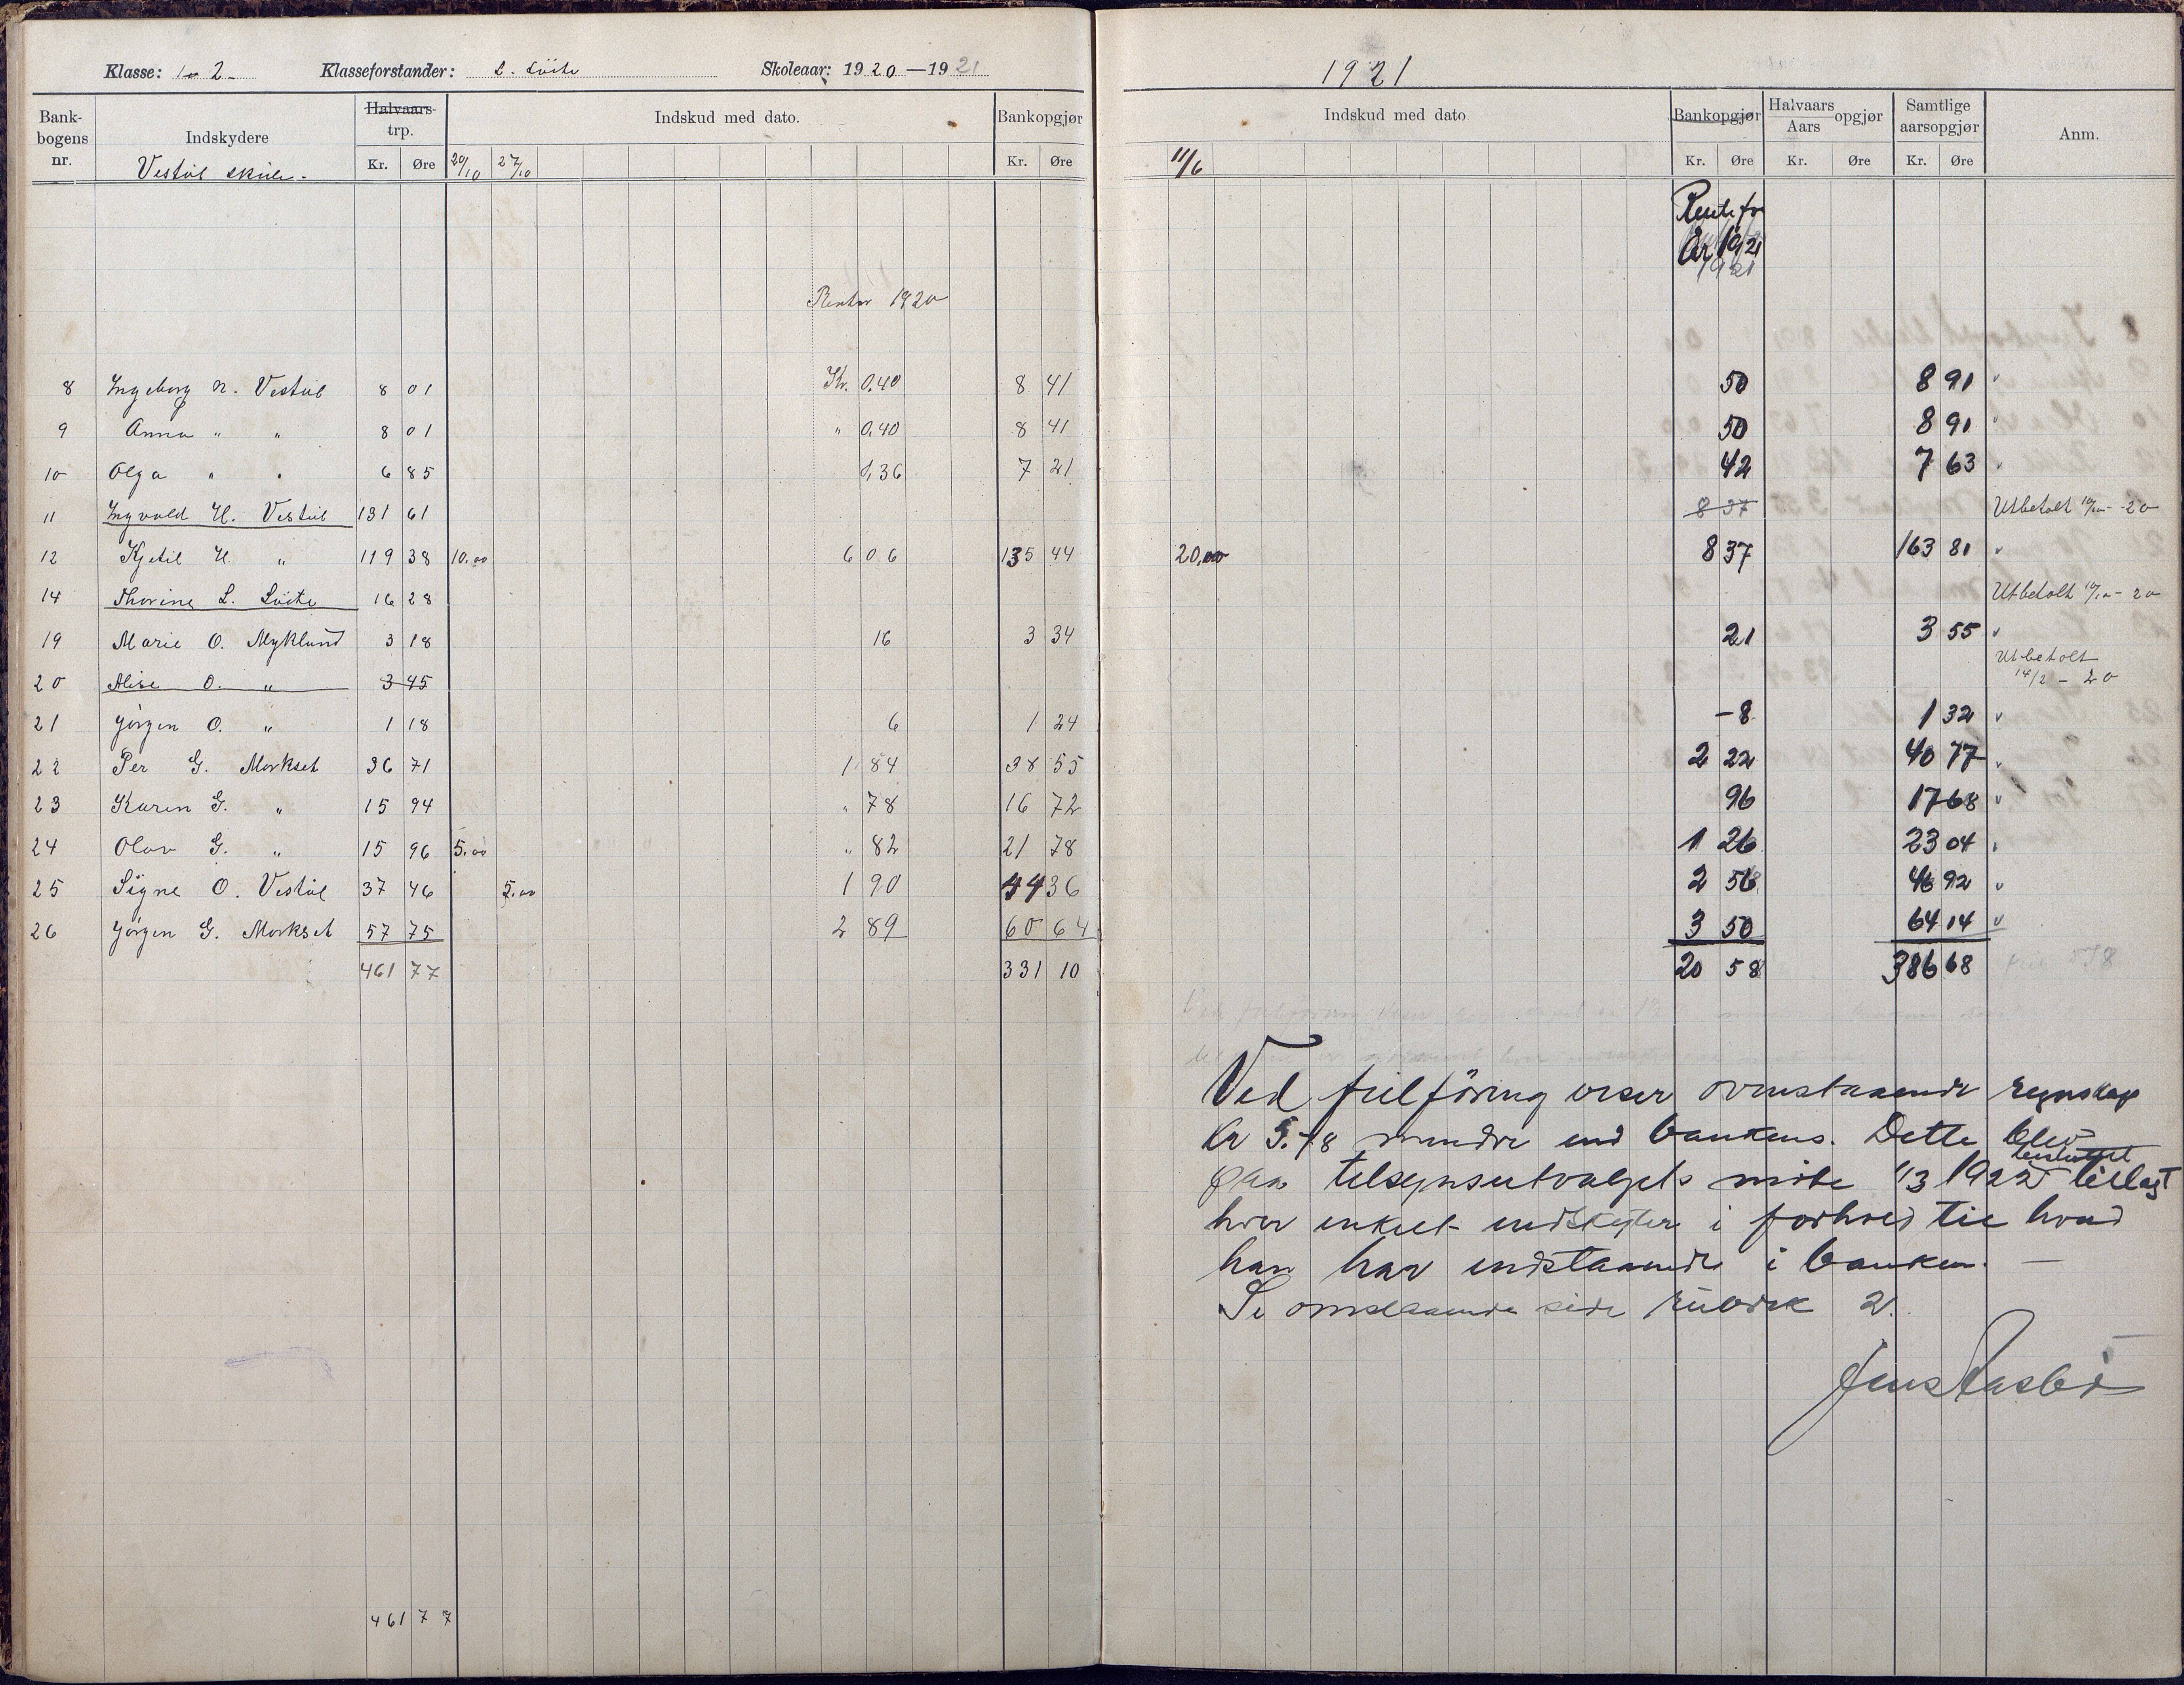 Klasse: 1 2 Klasseforstander: L. Löite Skoleaar: 1920—1921
Bankbogens nr. Indskydere Halvaars trp. Indskud med dato. Bankopgjør
Vestöl skule. Kr. Øre 20/10 27/10 Kr. Øre
Renter 1920
8 Ingeborg N. Vestöl 8 01 Kr. 0,40 8 41
9 Anna " " 8 01 " 0,40 8 41
10 Olga " " 6 85 0,36 7 21
11 Ingvald H. Vestöl 131 61
12 Kjetil H. " 119 38 10.00 6 06 135 44
14 Thorine L. Löite 16 28
19 Marie O. Myklund 3 18 16 3 34
20 Alise O. " 3 45
21 Jörgen O. " 1 18 6 1 24
22 Per G. Morkset 36 71 1 84 38 55
23 Karen G. " 15 94 " 78 16 72
24 Olav G. " 15 96 5.00 " 82 21 78
25 Signe O. Vestöl 37 46 5.00 1 90 44 36
26 Jörgen G. Morkset 57 75 2 89 60 64
461 77 331 10
461 77
1921
Indskud med dato Bankopgjør Halvaars Aars opgjør Samtlige aarsopgjør Anm.
11/6 Kr. Øre Kr. Øre Kr. Øre
Rente for
År 1921
1921
50 8 91
50 8 91
42 7 63
8 37 Utbetalt 10/10 - 20
20,00 8 37 163 81
Utbetalt 10/10 - 20
21 3 55
Utbetalt
14/2 - 20
-8 1 32
2 22 40 77
96 17 68
1 26 23 04
2 56 46 92
3 50 64 14
20 58 386 68
Ved fuldföring viser ovenstaaende regnskap
kr 5.78 mindre end bankens. Dette blev
besluttet
paa tilsynsutvalgets möte 1/3 1922 tillagt
hver enkelt indskyter i forhold til hvad
han har indstaaende i banken. —
Se omstaaende side rubrik 2.
Jens Aasbö